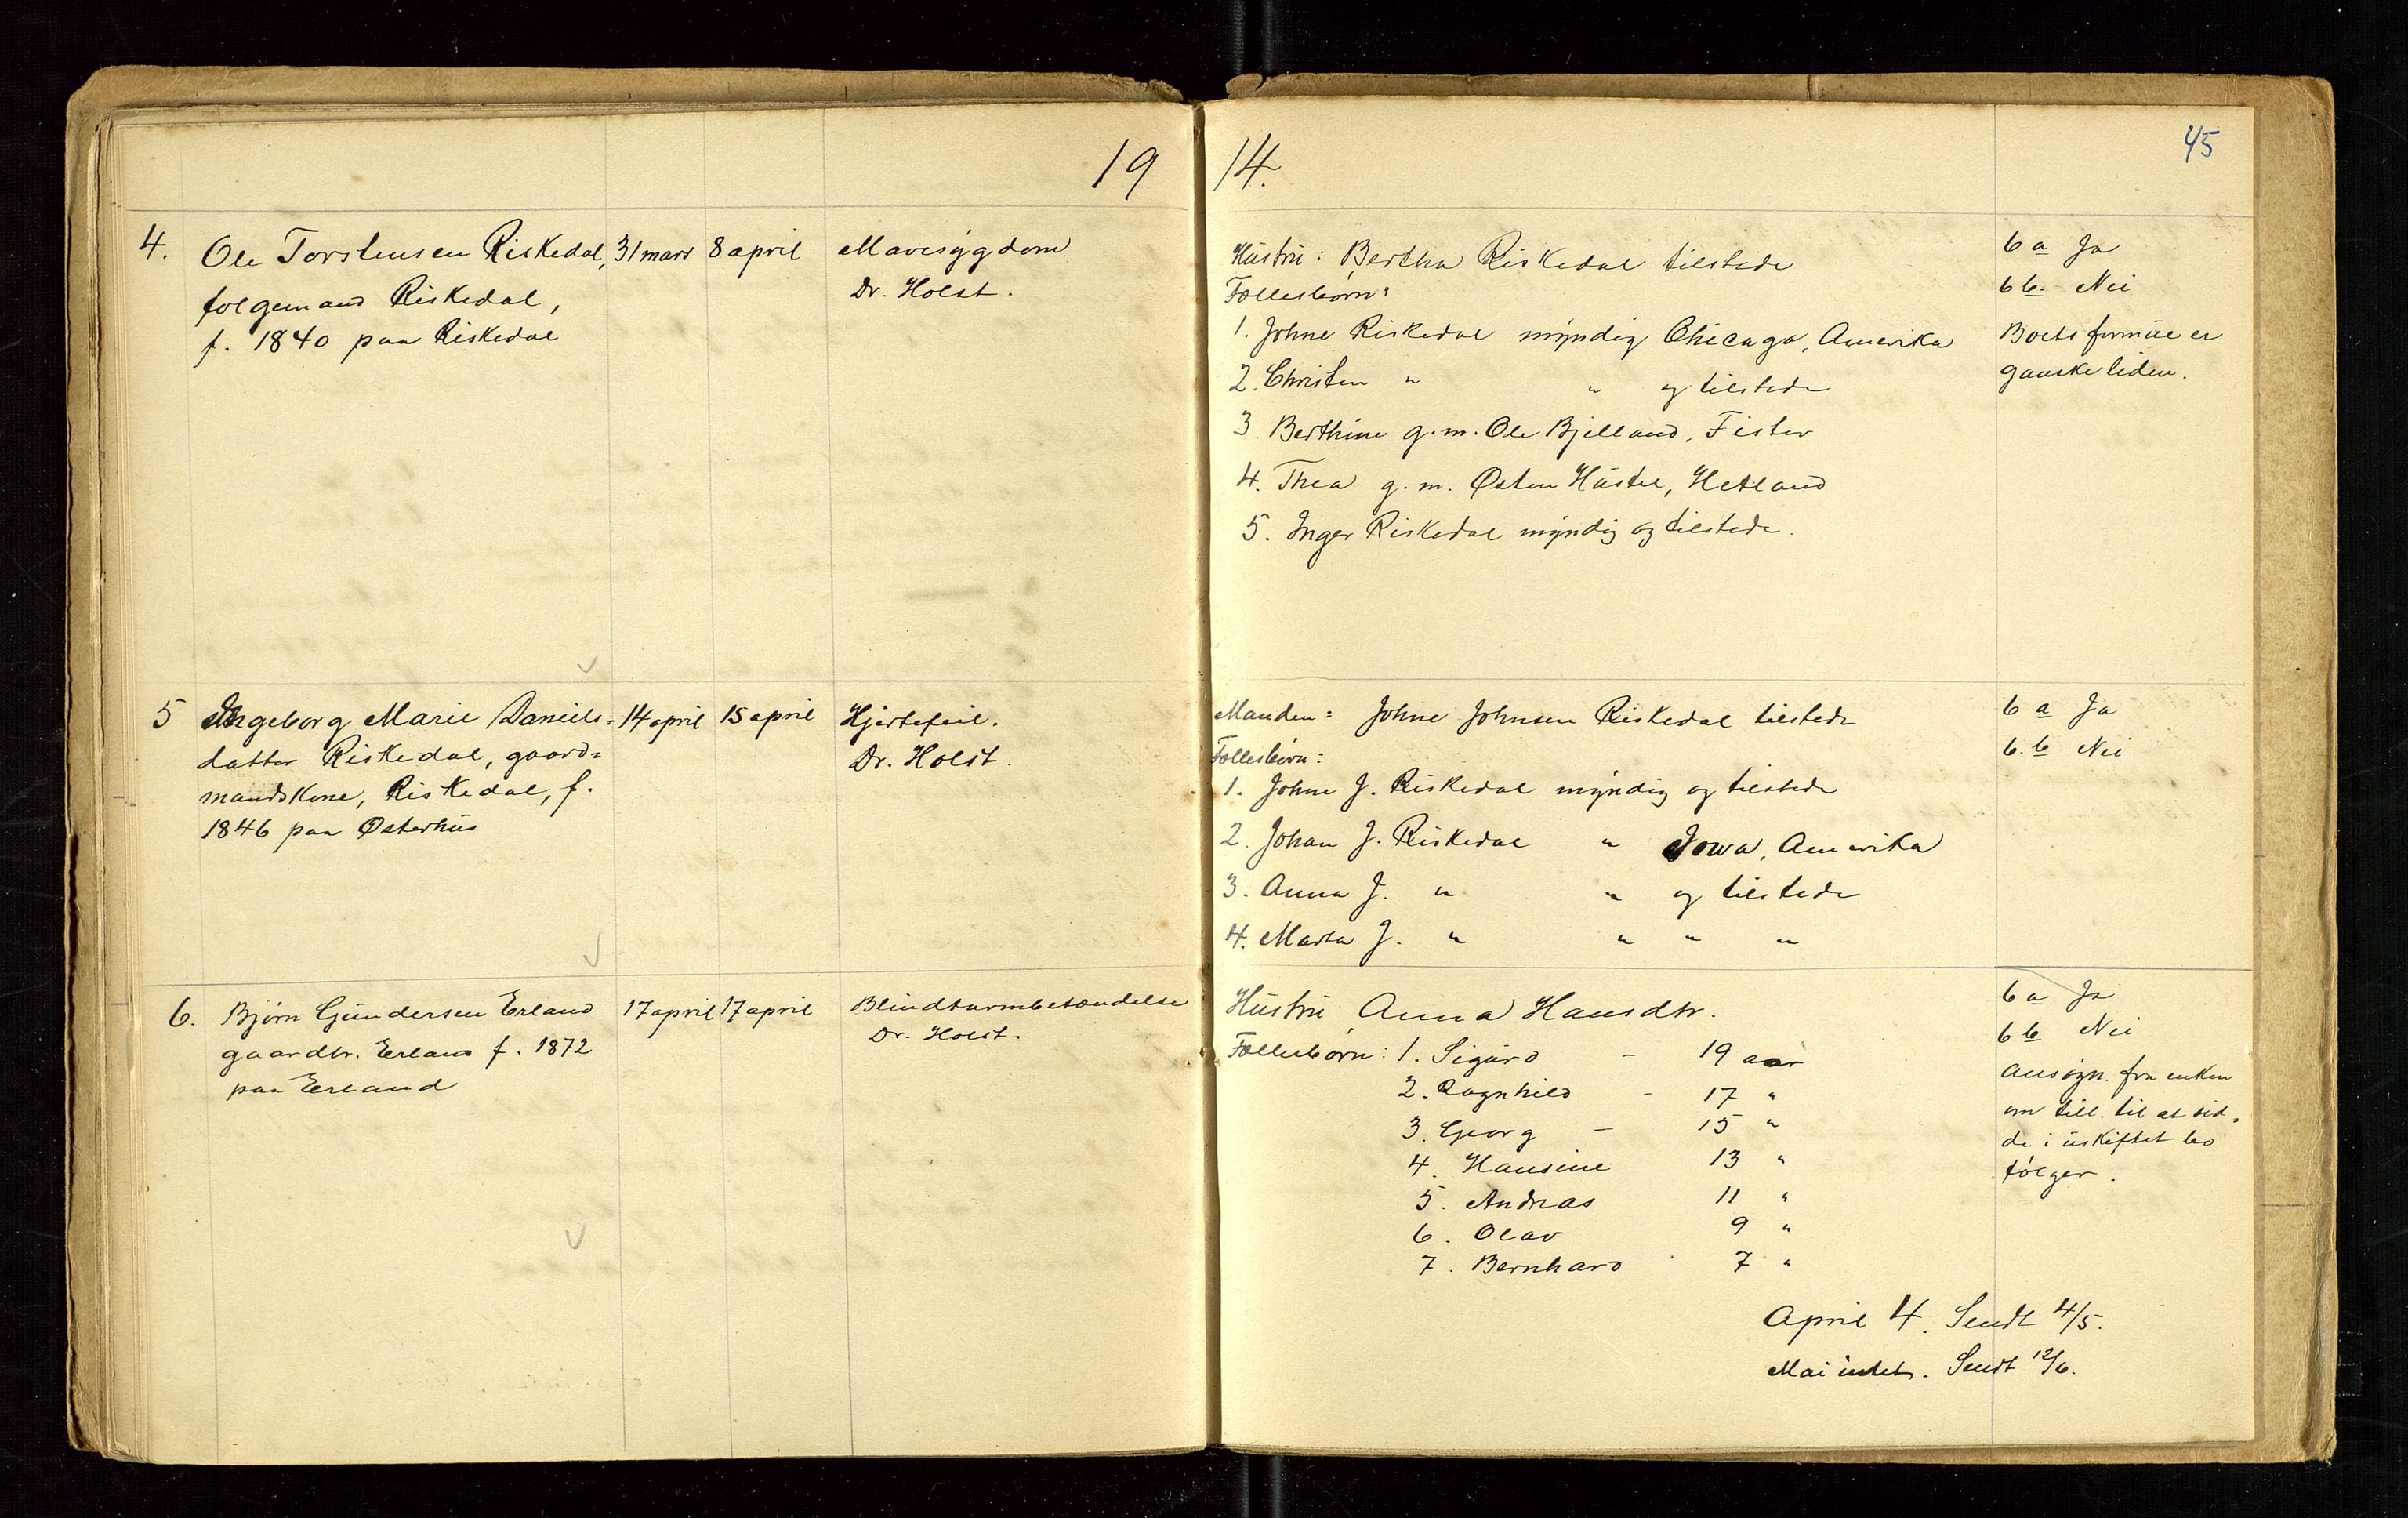 19
14.
45
4. Ole Torstensen Riskedal, 31 mars 8 april Mavesygdom
folgemand Riskedal, Dr. Holst.
f. 1840 paa Riskedal
Hustru: Bertha Riskedal tilstede
Fællesbørn:
1. Johne Riskedal myndig Chicago, Amerika
2. Christen " " og tilstede
3. Berthine g.m. Ole Bjelland, Fister
4. Thea g.m. Østen Hustel, Hetland
5. Inger Riskedal myndig og tilstede.
6 a Ja
6 b. Nei
Boets formue er
ganske liden.
5 Ingeborg Marie Daniels= 14 april 15 april Hjertefeil.
datter Riskedal, gaard= Dr. Holst.
mandskone, Riskedal, f.
1846 paa Østerhus
Manden: Johne Johnsen Riskedal tilstede
Fællesbørn:
1. Johne J. Riskedal myndig og tilstede
2. Johan J. Riskedal " Iowa, Amerika
3. Anna J. " " og tilstede
4. Marta J. " " " "
6 a Ja
6.b Nei
6. Bjørn Gundersen Erland 17 april 17 april Blindtarmbetændelse
gaardbr. Erland f. 1872 Dr. Holst.
paa Erland
Hustru Anna Hansdtr.
Fællesbørn: 1. Sigurd - 19 aar
2. Ragnhild - 17 "
3. Georg - 15 "
4. Hansine 13 "
5. Andreas 11 "
6. Olav 9 "
7. Bernhard 7 "
6 a Ja
6 b Nei
Ansøgn. fra enken
om till. til at sid=
de i uskiftet bo
følger.
April 4. Sendt 4/5.
Mai intet. Sendt 12/6.